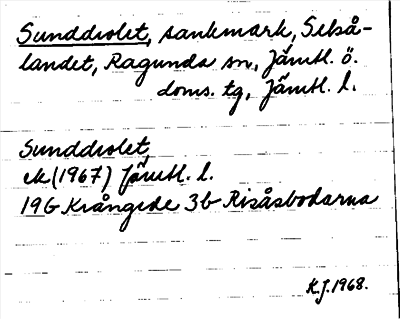 Sunddrolet, sankmark, Selså-
landet, Ragunda sn, Jämtl. ö.
doms. tg, Jämtl. l.
Sunddrolet
ek (1967) Jämtl. l.
19G Krångede 3b Risåsbodarna
K.J. 1968.